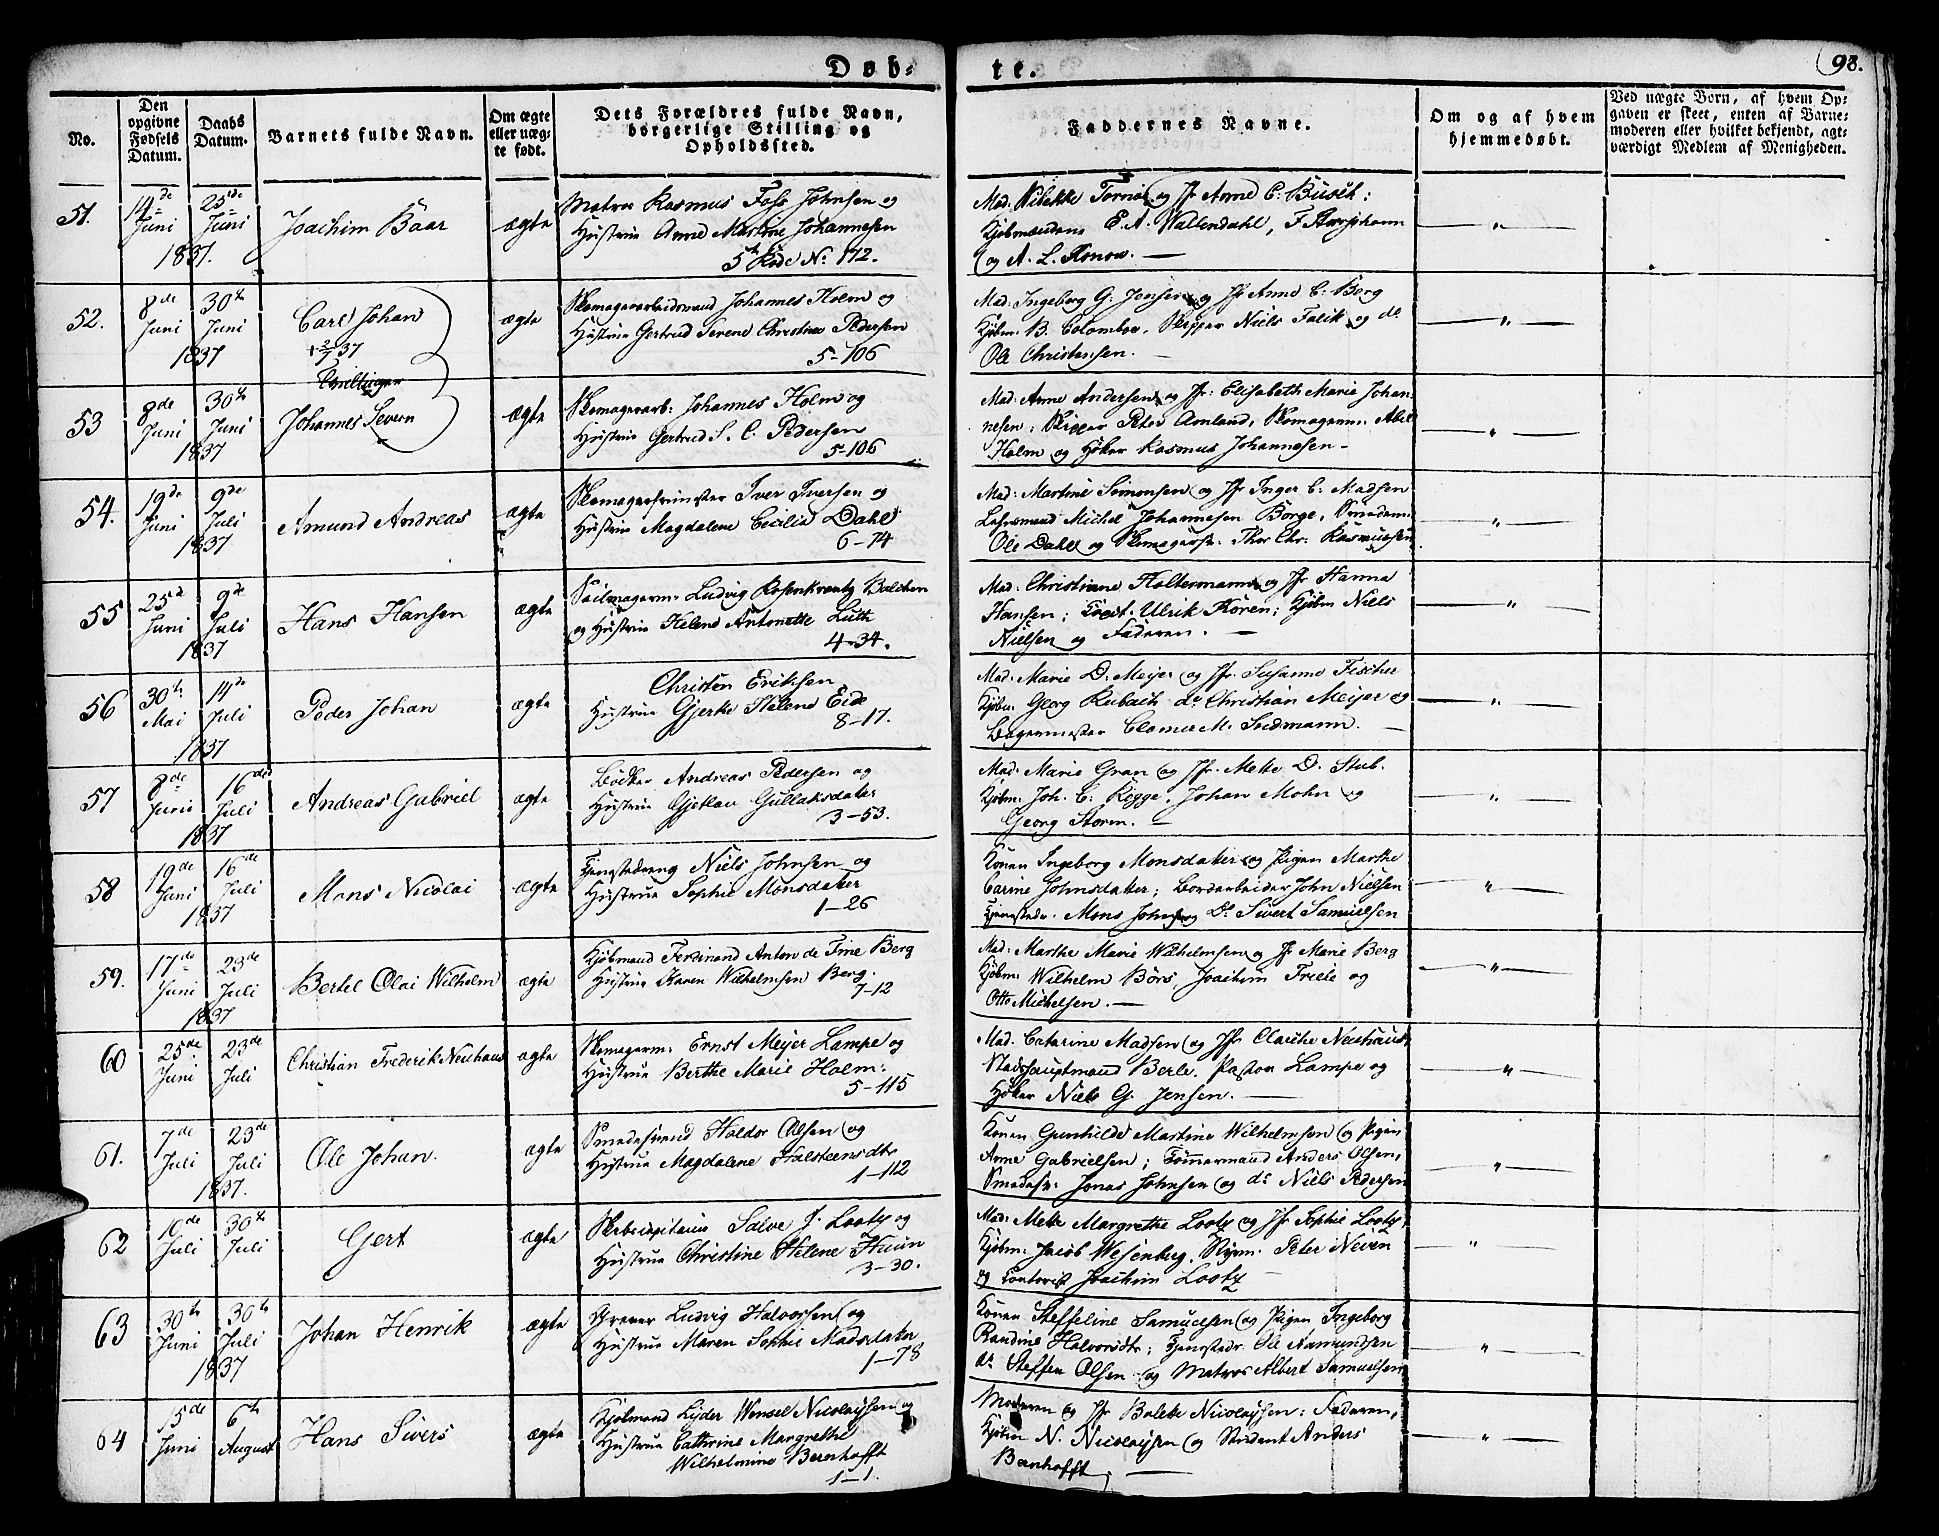 Døb-
te.
98.
No.
Den opgivne Fødsels Datum.
Daabs Datum.
Barnets fulde Navn.
Om ægte eller uægte født.
Dets Forældres fulde Navn, borgerlige Stilling og Opholdssted.
Faddernes Navne.
Om og af hvem hjemmedøbt.
Ved uægte Børn, af hvem Opgaven er skeet, enten af Barnemoderen eller hvilket bekjendt, agtværdigt Medlem af Menigheden.
51.
14de Juni
25de Juni
1837.
Joachim Baar
ægte
Matros Rasmus Foss Johnsen og
Hustrue Anne Martine Johannesen
5te Rode No. 172.
Mad. Vibekke Tornøe og Jfr Anne C. Busch:
Kjøbmændene E. A. Wallendahl,
og A. L. Konow.
52.
8de Juni
30te Juni
1837
Carl Johan
ægte
Skomagerarbeidsmand Johannes Holm og
Hustrue Gertrud Serene Christine Pedersen
5-106
Mad. Ingeborg G. Jensen og Jfr Anne C. Berg
Kjøbm: B. Colombo, Skipper Niels Falik og do
Ole Christensen.
Tvillinger
53
8de Juni
30te Juni
1837
Johannes Severn
ægte
Skomagerarb: Johannes Holm og
Hustrue Gertrud S. C. Pedersen
5-106
Mad: Anne Andersen og Jfr: Elisabeth Marie Johan-
nesen; Skipper Peter Amland, Skomagerm: Abel
Holm og Høker Rasmus Johannesen
54.
19de Juni
9de Juli
1837
Amund Andreas
ægte
Skomagersvend Iver Iversen og
Hustrue Magdalene Cecilia Dahl
6-74
Mad: Martine Simonsen og Jfr Inger C. Madsen
Lehnsmand Michel Johannesen Borge,
Ole Dahl og Skomagersv: Thor Chr. Rasmussen
55
25de Juni
9de Juli
1837
Hans Hansen
ægte
Seilmagerm: Ludvig Rosenkrantz Balchen
og Hustrue Helene Antonette Lüth
4-34.
Mad: Christiane Holtermann og Jfr Hanna
Hansen; Ulrik Koren; Kjøbm Niels
Nielsen og Faderen.
56
30te Mai
14de Juli
1837
Peder Johan
ægte
Christen Eriksen
Hustrue Gjerke Helene Eide
8-17.
Mad: Marie D. Meijer og Jfr Susanne Fischer
Kjøbm: Georg Rubach do Christian Meijer og
Bagermester M. Sudmann.
57
8de Juni
16de Juli
1837
Andreas Gabriel
ægte
Bødker Andreas Pedersen og
Hustrue Gjetlau Gullaksdater
3-53.
Mad: Marie Gran og Jfr. Mette D. Stub.
Kjøbm: Joh. C. Rigge, Johan Mohn og
Georg Storm.
58
19de Juni
16de Juli
1837
Mons Nicolai
ægte
Niels Johnsen og
Hustrue Sophie Monsdater
1-26
Konen Ingeborg Monsdater og Pigen Marthe
Carine Johnsdater; Bordarbeider John Nielsen
Mons Johnsen og Do. Sivert Samuelsen
59.
17de Juni
23de Juli
1837
Bertel Olai Wilhelm
ægte
Kjøbmand Ferdinand Anton de Fine Berg
Hustrue Karen Wilhelmsen Berg.
7-12
Mad: Marthe Marie Wilhelmsen og Jfr Marie Berg
Kjøbm: Wilhelm Børs, Joachim Friele og
Otto Michelsen.
60
25de Juni
23de Juli
Christian Frederik Neuhaus
ægte
Skomagerm: Ernst Meijer Lampe og
Hustrue Berthe Marie Holm:
5-115
Mad. Catarine Madsen og Jfr Claushe Neuhaus,
Stadshauptmand Berle, Pastor Lampe og
Høker Niels G. Jensen.
61.
7de Juli
23de Juli
1837.
Ole Johan.
ægte
Smedesvend Haldor Olsen og
Hustrue Magdalene Halsteensdtr
1-112
Konen Gunhilde Martine Wilhelmsen og Pigen
Anne Gabrielsen; Tømmermand Anders Olsen,
Smedesv: Jonas Johnsen og do Niels Pedersen
62
10de Juli
30te Juli
Gert
ægte
Skibscapitain Salve J. Lootz og
Hustrue Christine Helene Huun
3-30.
Mad: Mette Margrethe Lootz og Jfr Sophie Lootz,
Kjøbm: Jacob Wesenberg, Peter Neven
og Contorist Joachim Lootz
63
30te Juni
30te Juli
1837
Johan Henrik
ægte
Ludvig Halvorsen og
Hustrue Maren Sophie Madsdater
1-78
Konen Steffeline Samuelsen og Pigen Ingeborg
Randine Halvorsdtr; Ole Aamundsen
do Steffen Olsen og Matros Albert Samuelsen
64
5de Juni
6te August
Hans Sivers
ægte
Kjøbmand Lyder Wensel Nicolaysen og
Hustrue Cathrine Margrethe
Wilhelmine Bernhofft
1-1.
Moderen og Jfr Bolette Nicolaysen: Faderen,
Kjøbm N. Nicolaysen og Student Anders
Bernhofft